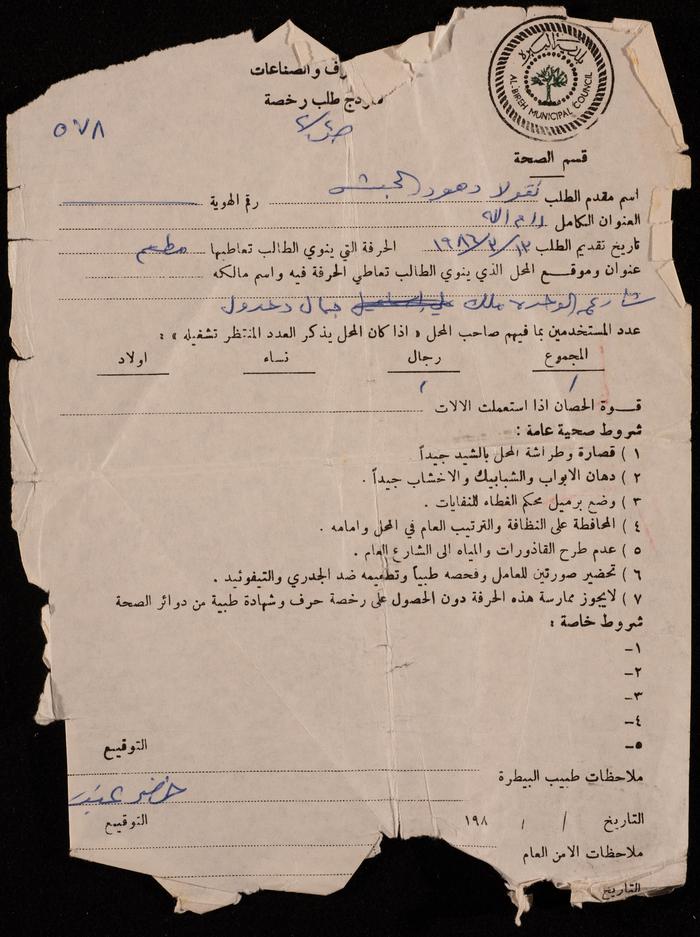 بلدية البيرة
AL-BIREH MUNICIPAL COUNCIL
رف والصناعات
وذج طلب رخصة
٥٧٨
قسم الصحة
اسم مقدم الطلب نقولا دهود الحبش رقم الهوية
العنوان الكامل رام الله
تاريخ تقديم الطلب ١٩٨٦/٣/١٣ الحرفة التي ينوي الطالب تعاطيها مطعم
عنوان وموقع المحل الذي ينوي الطالب تعاطي الحرفة فيه واسم مالكه
شارع الوحدة ملك جمال دحدول
عدد المستخدمين بما فيهم صاحب المحل « اذا كان المحل يذكر العدد المنتظر تشغيله » :
المجموع رجال نساء اولاد
١ ١
قوة الحصان اذا استعملت الالات
شروط صحية عامة :
١ ) قصارة وطراشة المحل بالشيد جيداً
٢ ) دهان الابواب والشبابيك والاخشاب جيداً .
٣ ) وضع برميل محكم الغطاء للنفايات .
٤ ) المحافظة على النظافة والترتيب العام في المحل وامامه .
٥ ) عدم طرح القاذورات والمياه الى الشارع العام .
٦ ) تحضير صورتين للعامل وفحصه طبياً وتطعيمه ضد الجدري والتيفوئيد .
٧ ) لايجوز ممارسة هذه الحرفة دون الحصول على رخصة حرف وشهادة طبية من دوائر الصحة
شروط خاصة :
١-
٢-
٣-
٤-
٥-
التوقيع
ملاحظات طبيب البيطرة
التاريخ / / ١٩٨ التوقيع
ملاحظات الامن العام
التاريخ